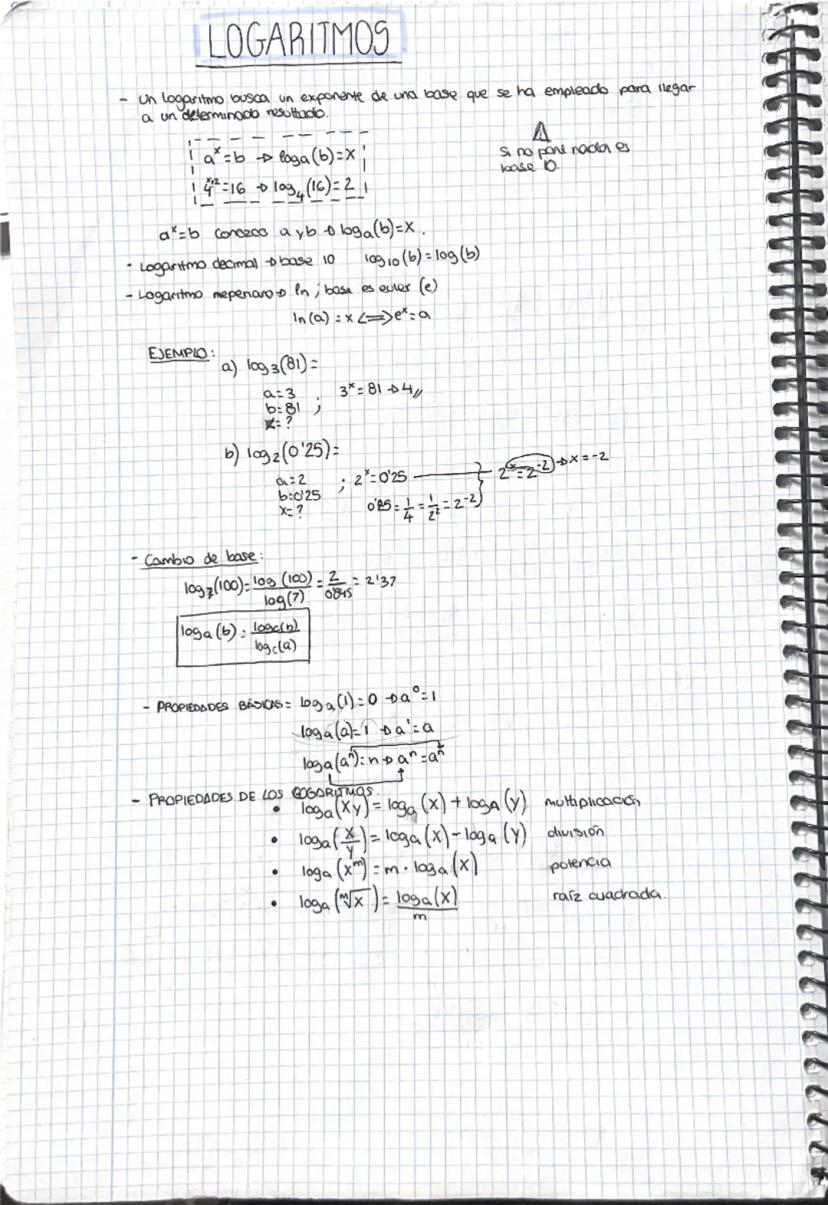 LOGARITMOS
- Un logaritmo busca un exponente de una base que se ha empleado para llegar
a un determinado resultado.
⚠ Si no pone nada es
base 10.
aˣ=b → logₐ(b)=x
4ˣ⁼²=16 → log₄(16)=2
aˣ=b conozco a y b → logₐ(b)=x.
- Logaritmo decimal → base 10 log₁₀(b)=log(b)
- Logaritmo neperiano → ln; base es euler (e)
ln(a)=x <=> eˣ=a
EJEMPLO:
a) log₃(81)=
a=3 ; 3ˣ=81 → 4//
b=81
x=?
b) log₂(0'25)=
a=2 ; 2ˣ=0'25 } 2ˣ=2⁻² → x=-2
b=0'25
x=? 0'25=1/4=1/2²=2⁻²
- Cambio de base:
log₇(100)=log(100)/log(7)=2/0'845=2'37
logₐ(b)=log꜀(b)/log꜀(a)
- PROPIEDADES BÁSICAS= logₐ(1)=0 → a⁰=1
logₐ(a)=1 → a¹=a
logₐ(aⁿ)=n → aⁿ=aⁿ
- PROPIEDADES DE LOS LOGORITMOS.
• logₐ(xy)=logₐ(x)+logₐ(y) multiplicación
• logₐ(x/y)=logₐ(x)-logₐ(y) división
• logₐ(xᵐ)=m·logₐ(x) potencia
• logₐ(ᵐ√x)=logₐ(x)/m raíz cuadrada.